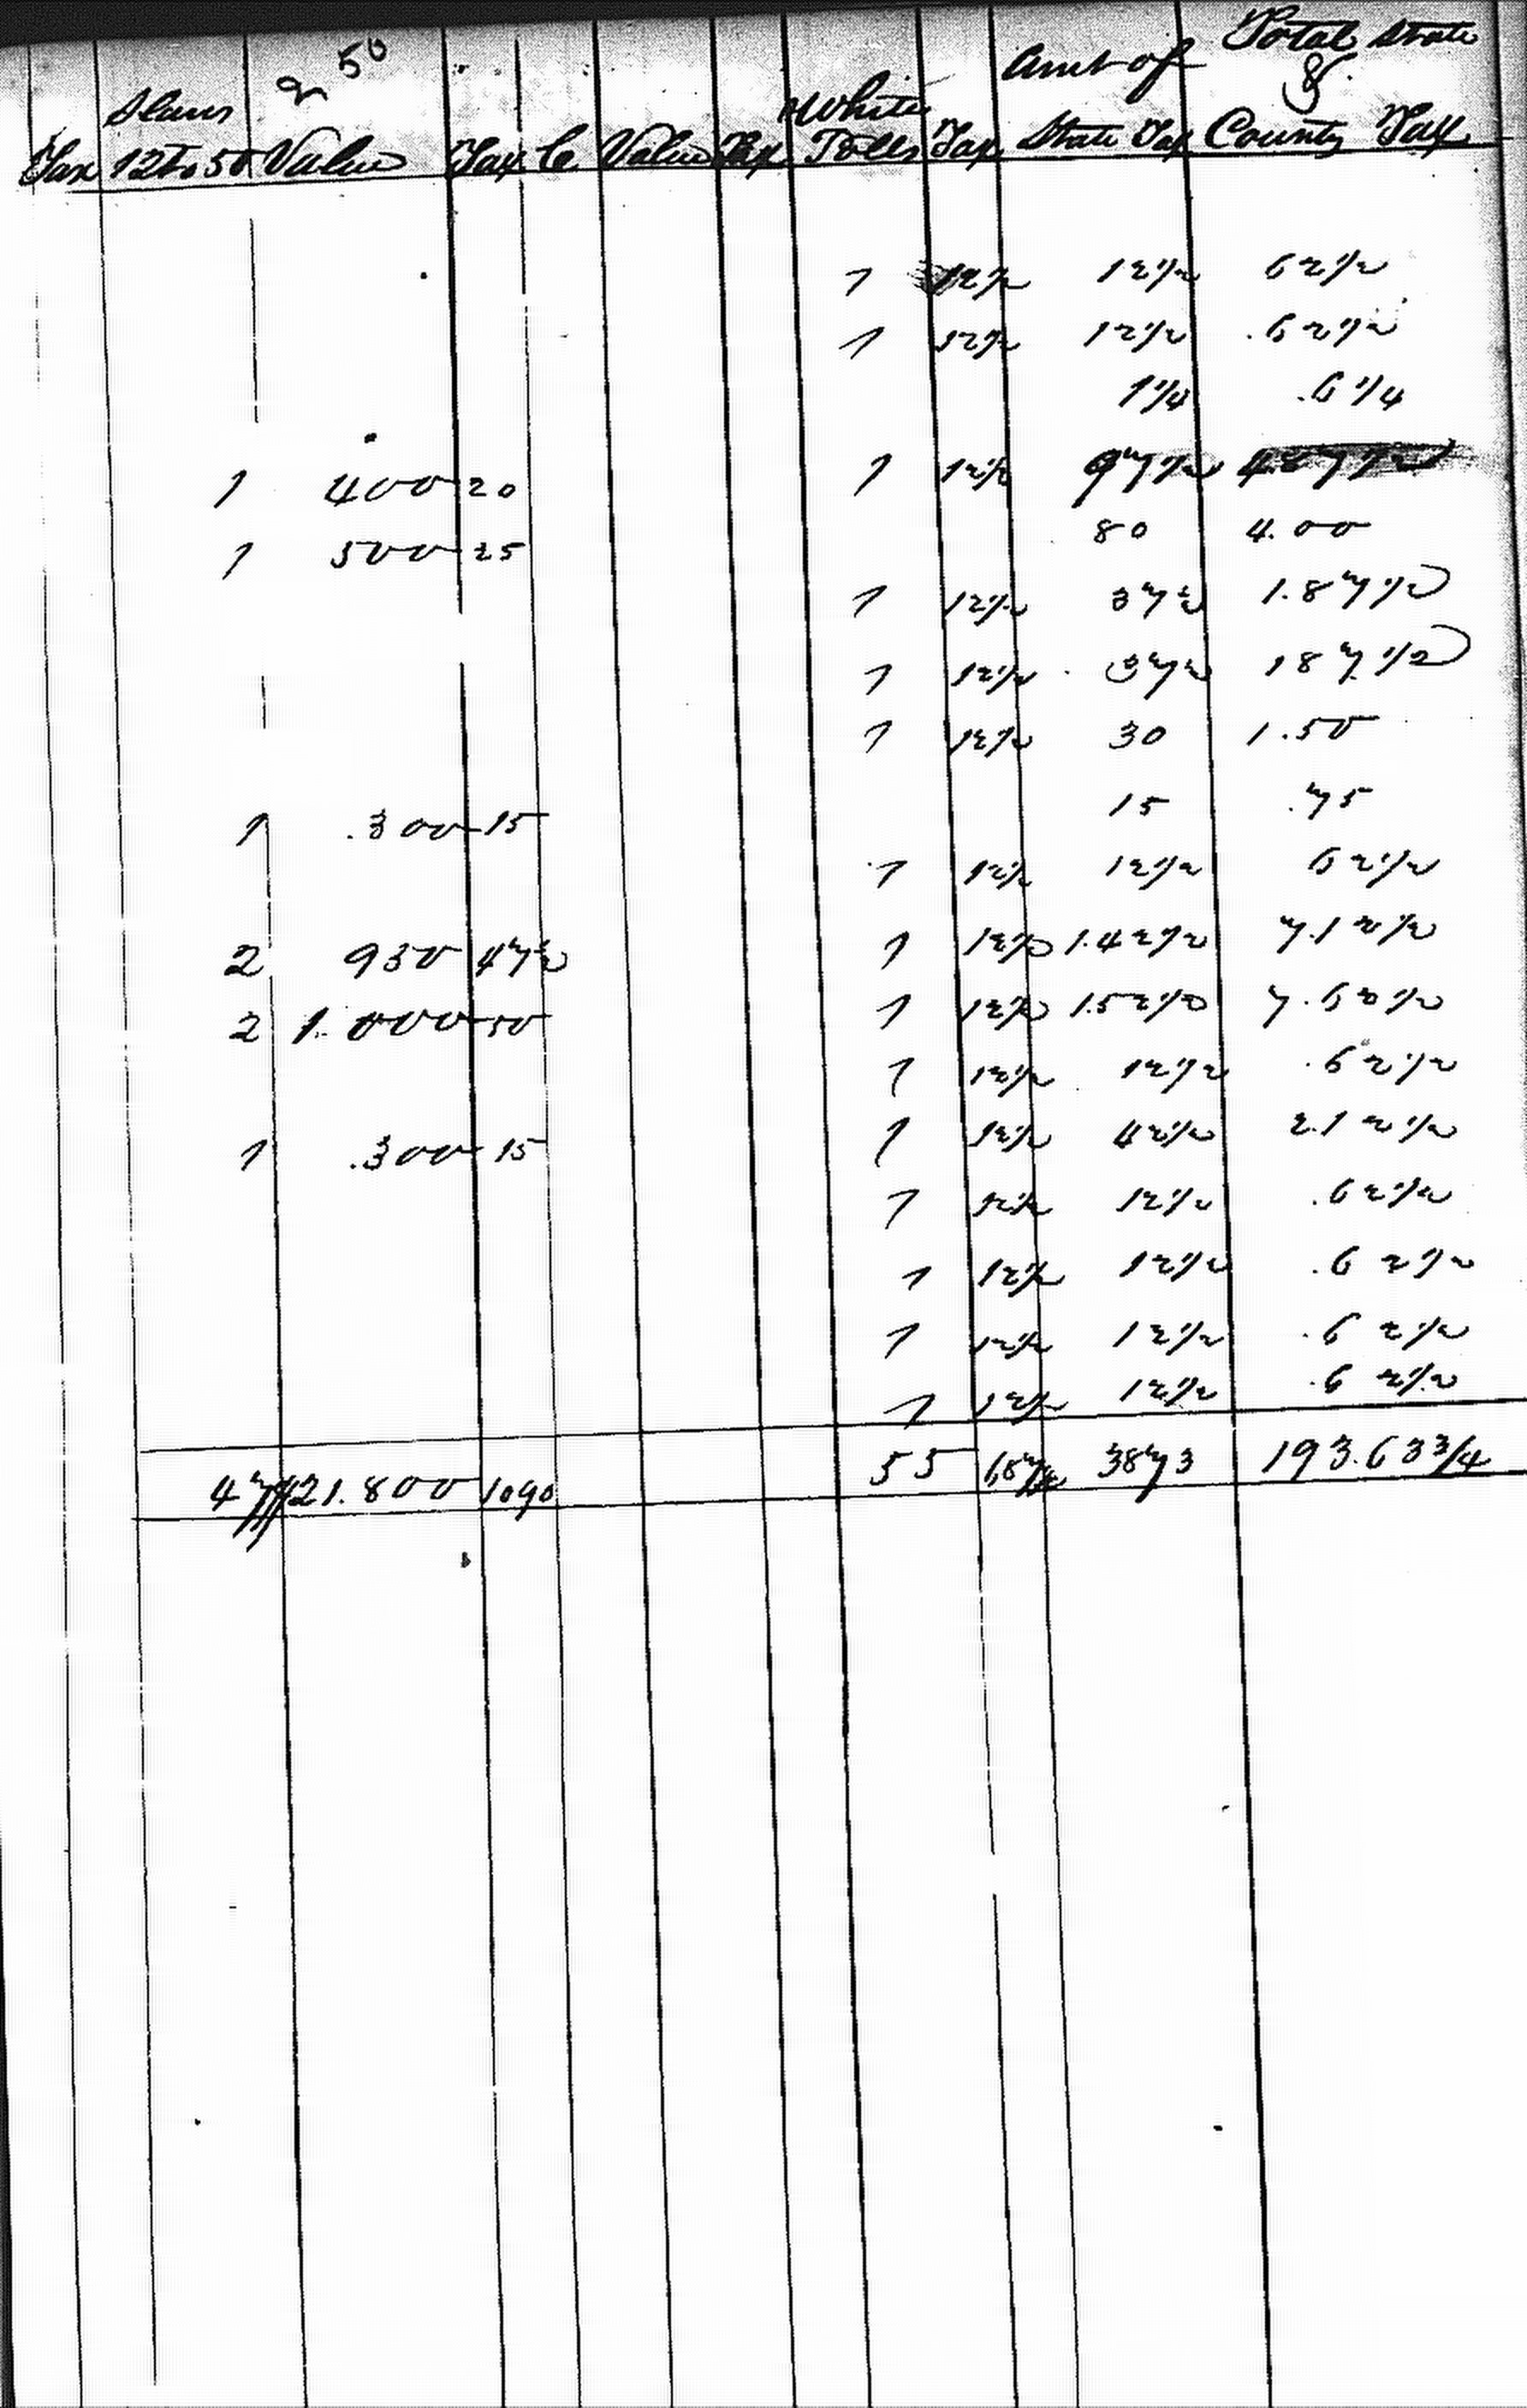 2 50
Slaves White Amt of Total State &
Tax 12 to 50 Value Tax C Value Tax Polls Tax State Tax County Tax
1 12 1/2 12 1/2 62 1/2
1 12 1/2 12 1/2 .62 1/2
1 1/4 .6 1/4
1 400 20 1 12 1/2 97 1/2 4.87 1/2
1 500 25 80 4.00
1 12 1/2 37 1/2 1.87 1/2
1 12 1/2 37 1/2 187 1/2
1 12 1/2 30 1.50
1 .300 15 15 .75
1 12 1/2 12 1/2 62 1/2
2 950 47 1/2 1 12 1/2 1.42 1/2 7.12 1/2
2 1.000 50 1 12 1/2 1.52 1/2 7.62 1/2
1 12 1/2 12 1/2 .62 1/2
1 .300 15 1 12 1/2 42 1/2 2.12 1/2
1 12 1/2 12 1/2 .62 1/2
1 12 1/2 12 1/2 .62 1/2
1 12 1/2 12 1/2 .62 1/2
1 12 1/2 12 1/2 .62 1/2
47 21.800 1090 55 687 1/2 3873 193.63 3/4